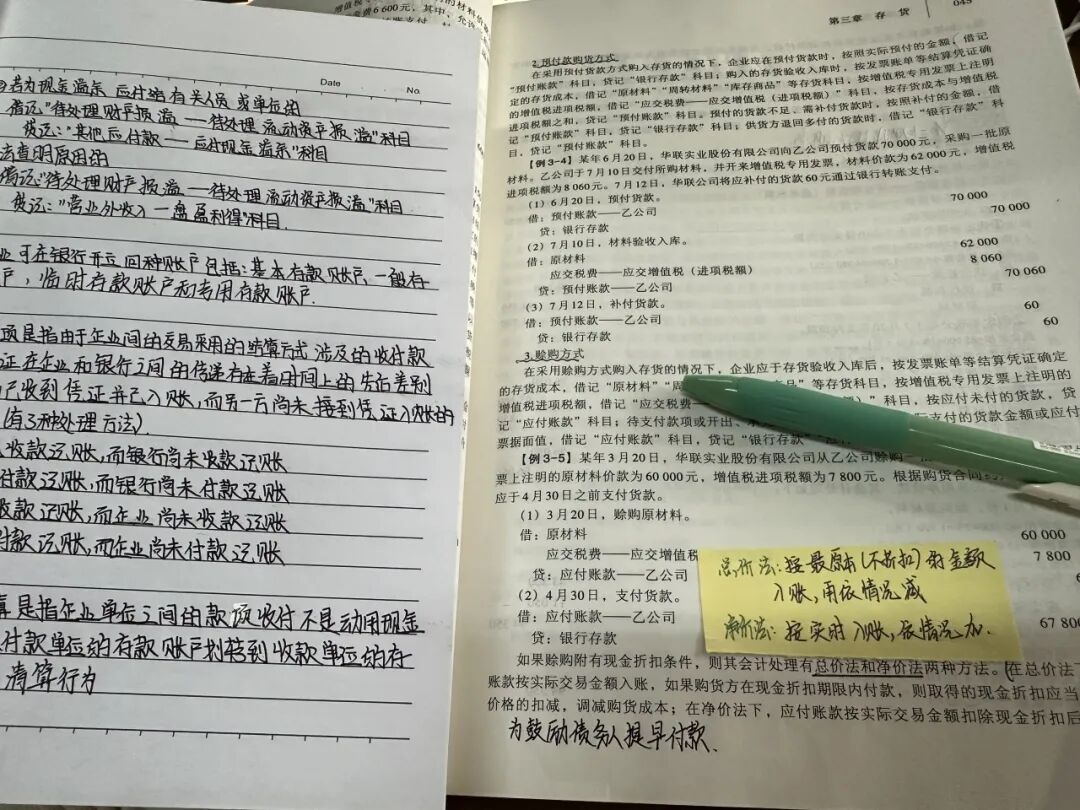 Date
No.
若为现金溢余 应付给有关人员或单位的
借记:"待处理财产损溢 — 待处理流动资产损溢"科目
贷记:"其他应付款 — 应付现金溢余"科目
查明原因的
借记:"待处理财产损溢 — 待处理流动资产损溢"科目
贷记:"营业外收入 — 盘盈利得"科目.
业可在银行开立四种账户包括:基本存款账户,一般存
户,临时存款账户和专用存款账户.
项是指由于企业间的交易采用的结算方式涉及的收付款
证在企业和银行之间的传递存在着时间上的先后差别
已收到凭证并已入账,而另一方尚未接到凭证入账的
(有3种处理方法)
收款记账,而银行尚未收款记账
付款记账,而银行尚未付款记账
收款记账,而企业尚未收款记账
付款记账,而企业尚未付款记账
算是指企业单位之间的款项收付不是动用现金
付款单位的存款账户划转到收款单位的存
清算行为
费6 600元,其中,允许
第三章 存 货
045
2.预付款购货方式
在采用预付货款方式购入存货的情况下,企业应在预付货款时,按照实际预付的金额,借记
“预付账款”科目,贷记“银行存款”科目;购入的存货验收入库时,按发票账单等结算凭证确
定的存货成本,借记“原材料”“周转材料”“库存商品”等存货科目,按增值税专用发票上注明
的增值税进项税额,借记“应交税费——应交增值税(进项税额)”科目,按存货成本与增值税
进项税额之和,贷记“预付账款”科目。预付的货款不足、需补付货款时,按照补付的金额,借
记“预付账款”科目,贷记“银行存款”科目;供货方退回多付的货款时,借记“银行存款”科
目,贷记“预付账款”科目。
【例3-4】某年6月20日,华联实业股份有限公司向乙公司预付货款70 000元,采购一批原
材料。乙公司于7月10日交付所购材料,并开来增值税专用发票,材料价款为62 000元,增值税
进项税额为8 060元。7月12日,华联公司将应补付的货款60元通过银行转账支付。
(1)6月20日,预付货款。
借:预付账款——乙公司 70 000
贷:银行存款 70 000
(2)7月10日,材料验收入库。
借:原材料 62 000
应交税费——应交增值税(进项税额) 8 060
贷:预付账款——乙公司 70 060
(3)7月12日,补付货款。
借:预付账款——乙公司 60
贷:银行存款 60
3.赊购方式
在采用赊购方式购入存货的情况下,企业应于存货验收入库后,按发票账单等结算凭证确定
的存货成本,借记“原材料”“周 品”等存货科目,按增值税专用发票上注明的
增值税进项税额,借记“应交税费— 额)”科目,按应付未付的货款,贷
记“应付账款”科目;待支付款项或开出、 支付的货款金额或应付
票据面值,借记“应付账款”科目,贷记“银行存款”
【例3-5】某年3月20日,华联实业股份有限公司从乙公司赊购一
票上注明的原材料价款为60 000元,增值税进项税额为7 800元。根据购货合同约
应于4月30日之前支付货款。
(1)3月20日,赊购原材料。
借:原材料 60 000
应交税费——应交增值税 7 800
贷:应付账款——乙公司
(2)4月30日,支付货款。
借:应付账款——乙公司 67 80
贷:银行存款
总价法:按最原本(不折扣)的金额
入账,再依情况减
净价法:按实时入账,依情况加.
如果赊购附有现金折扣条件,则其会计处理有总价法和净价法两种方法。在总价法下
账款按实际交易金额入账,如果购货方在现金折扣期限内付款,则取得的现金折扣应当
价格的扣减,调减购货成本;在净价法下,应付账款按实际交易金额扣除现金折扣后
为鼓励债务人提早付款.